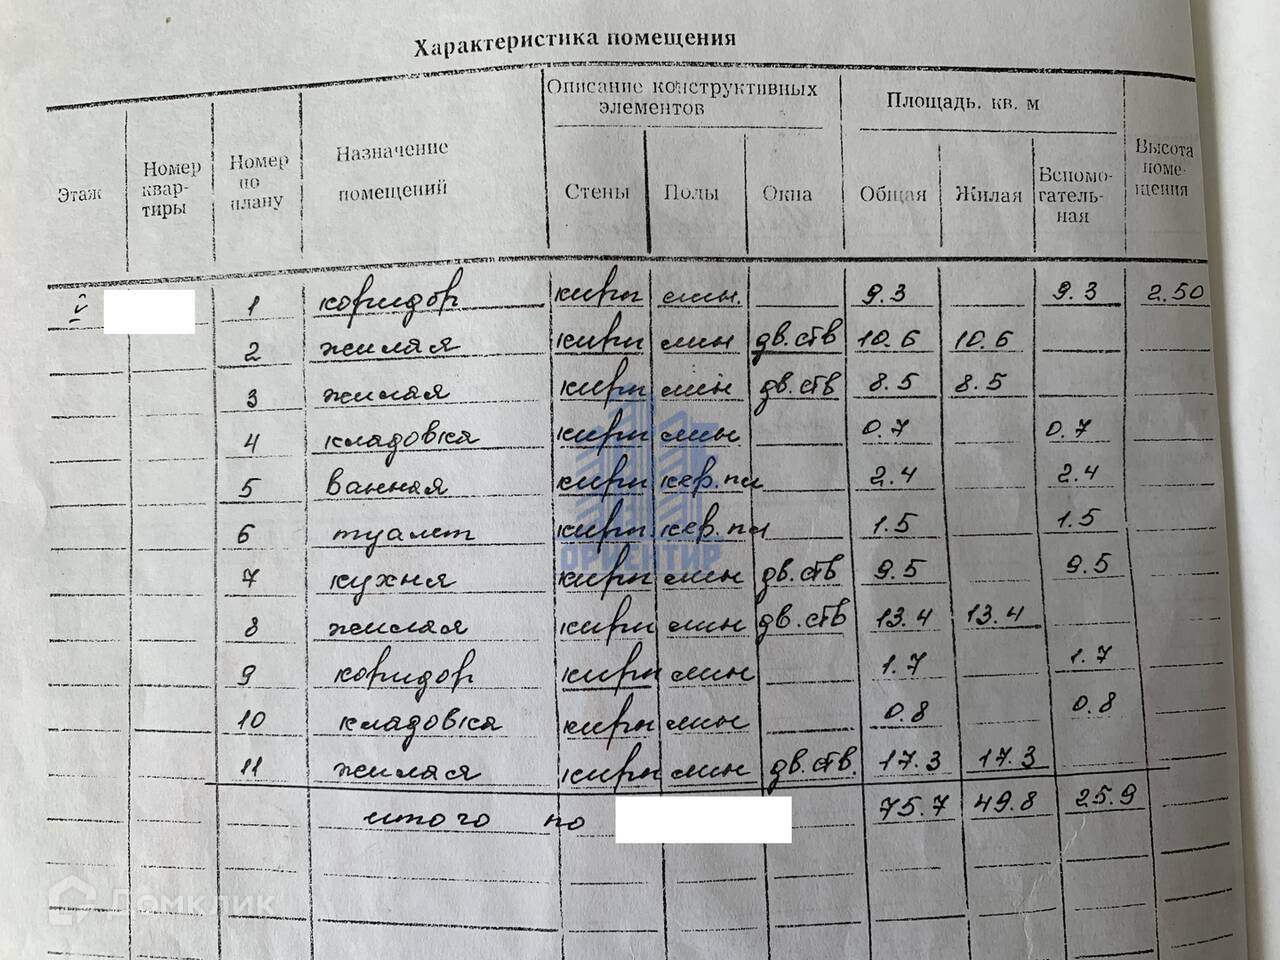 Характеристика помещения
Этаж
Номер квар- тиры
Номер по плану
Назначение помещений
Описание конструктивных элементов
Стены Полы Окна
Площадь, кв. м
Общая Жилая Вспомо- гатель- ная
Высота поме- щения
1 коридор кирп мин. 9.3 9.3 2.50
2 жилая кирп мин дв.ств 10.6 10.6
3 жилая кирп мин дв.ств 8.5 8.5
4 кладовка кирп мин 0.7 0.7
5 ванная кирп кер.пл 2.4 2.4
6 туалет кирп кер.пл 1.5 1.5
7 кухня кирп мин дв.ств 9.5 9.5
8 жилая кирп мин дв.ств 13.4 13.4
9 коридор кирп мин 1.7 1.7
10 кладовка кирп мин 0.8 0.8
11 жилая кирп мин дв.ств. 17.3 17.3
итого по 75.7 49.8 25.9
ОРИЕНТИР
Домклик